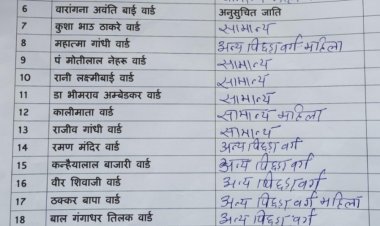 6 वारांगना अवंति बाई वार्ड अनुसुचित जाति
7 कुशा भाऊ ठाकरे वार्ड सामान्य
8 महात्मा गांधी वार्ड अन्य पिछडा वर्ग महिला
9 पं मोतीलाल नेहरू वार्ड सामान्य
10 रानी लक्ष्मीबाई वार्ड सामान्य
11 डा भीमराव अम्बेडकर वार्ड सामान्य
12 कालीमाता वार्ड सामान्य महिला
13 राजीव गांधी वार्ड सामान्य
14 रमण मंदिर वार्ड अन्य पिछडा वर्ग
15 कन्हैयालाल बाजारी वार्ड अन्य पिछडा वर्ग
16 वीर शिवाजी वार्ड अन्य पिछडा वर्ग
17 ठक्कर बापा वार्ड अन्य पिछडा वर्ग महिला
18 बाल गंगाधर तिलक वार्ड अन्य पिछडा वर्ग